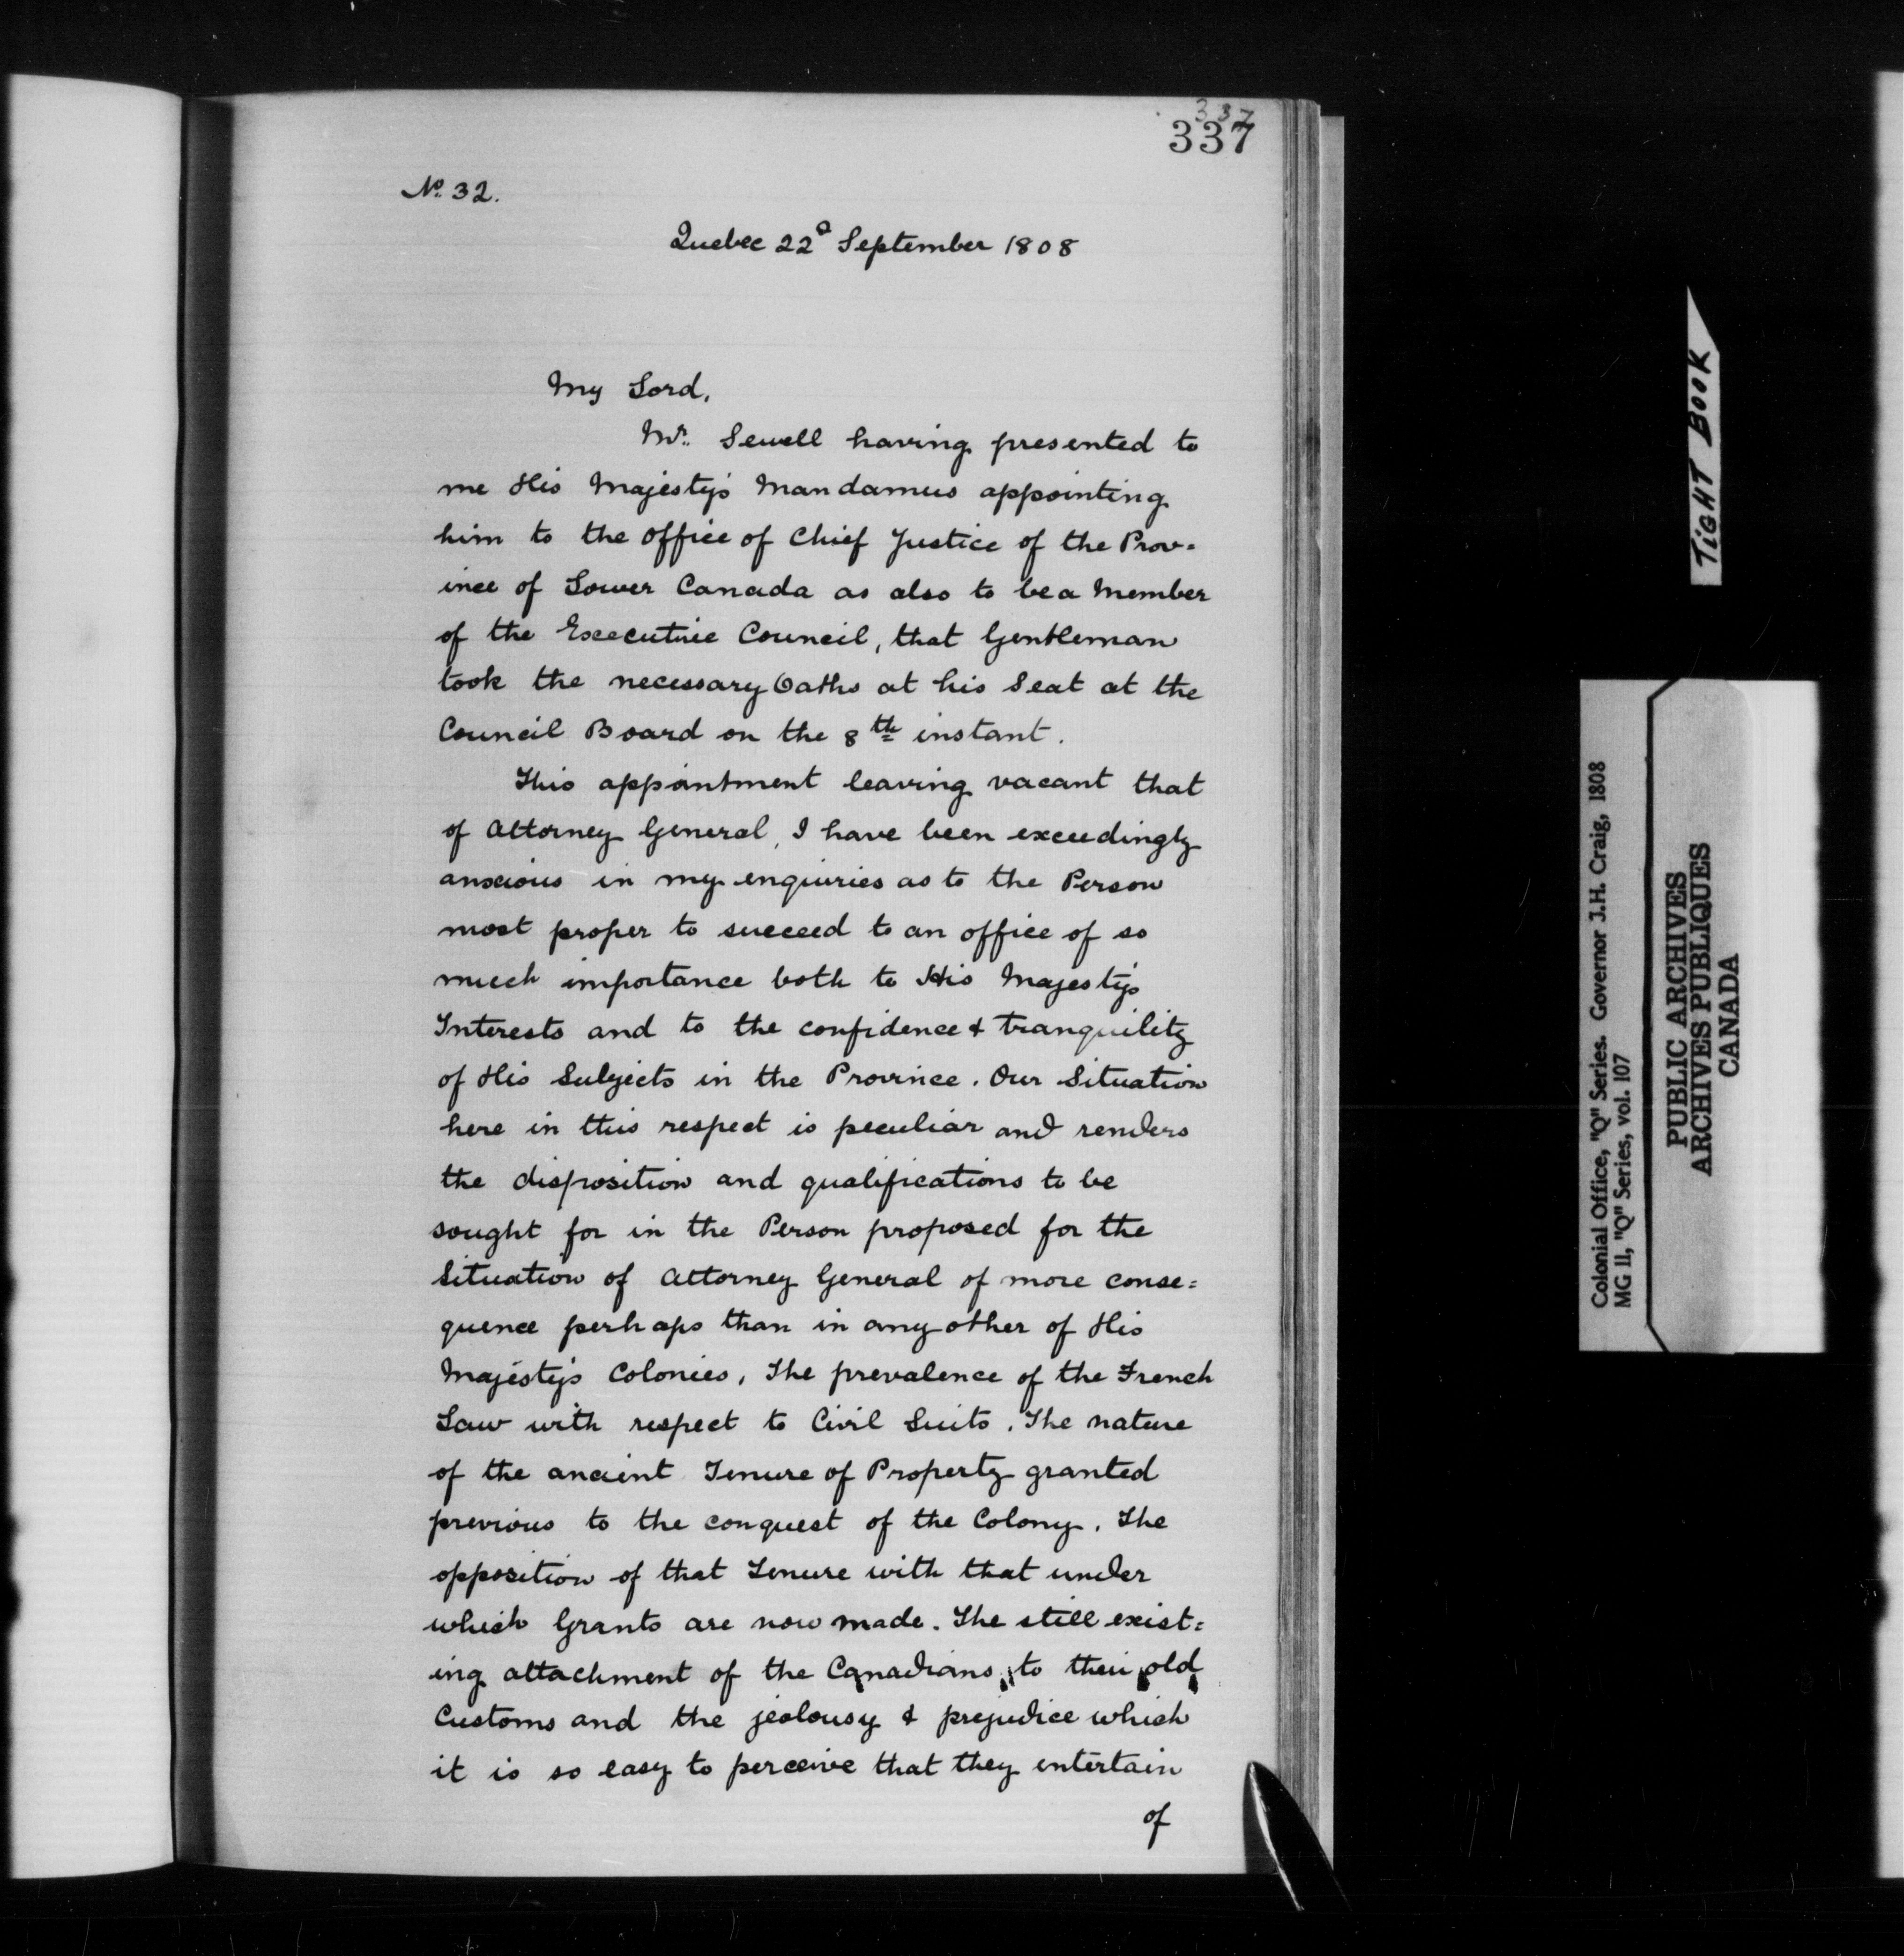 337
337
No. 32.
Quebec 22d September 1808
My Lord,
Mr. Sewell having presented to
me His Majesty's Mandamus appointing
him to the office of Chief Justice of the Prov=
ince of Lower Canada as also to be a Member
of the Executive Council, that Gentleman
took the necessary Oaths at his Seat at the
Council Board on the 8th instant.
This appointment leaving vacant that
of Attorney General, I have been exceedingly
anxious in my enquiries as to the Person
most proper to succeed to an office of so
much importance both to His Majesty's
Interests and to the confidence & tranquility
of His Subjects in the Province. Our Situation
here in this respect is peculiar and renders
the disposition and qualifications to be
sought for in the Person proposed for the
Situation of Attorney General of more conse=
quence perhaps than in any other of His
Majesty's Colonies, The prevalence of the French
Law with respect to Civil Suits. The nature
of the ancient Tenure of Property granted
previous to the conquest of the Colony. The
opposition of that Tenure with that under
which Grants are now made. The still exist=
ing attachment of the Canadians to their old
Customs and the jealousy & prejudice which
it is so easy to perceive that they entertain
of
TIGHT BOOK
Colonial Office, "Q" Series. Governor J.H. Craig, 1808
MG 11, "Q" Series, vol. 107
PUBLIC ARCHIVES
ARCHIVES PUBLIQUES
CANADA